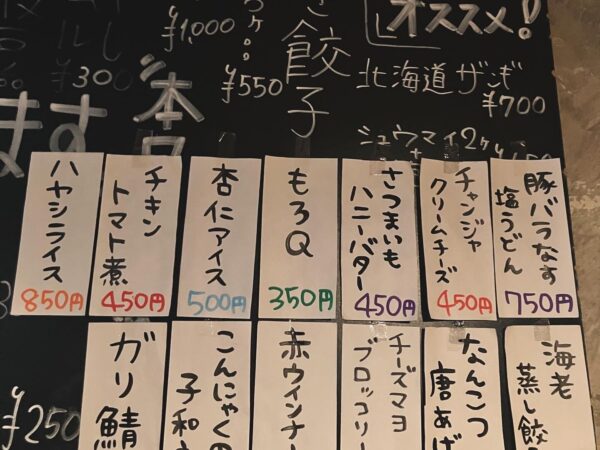 ¥1,000
¥300
ます
¥550
餃子
オススメ!
北海道ザンギ
¥700
シュウマイ2ケ
豚バラなす
塩うどん
750円
チャンジャ
クリームチーズ
450円
さつまいも
ハニーバター
450円
もろQ
350円
杏仁アイス
500円
チキン
トマト煮
450円
ハヤシライス
850円
海老
蒸し餃
なんこつ
唐あげ
チーズマヨ
ブロッコリー
赤ウインナー
こんにゃくの
子和
ガリ鯖
¥250